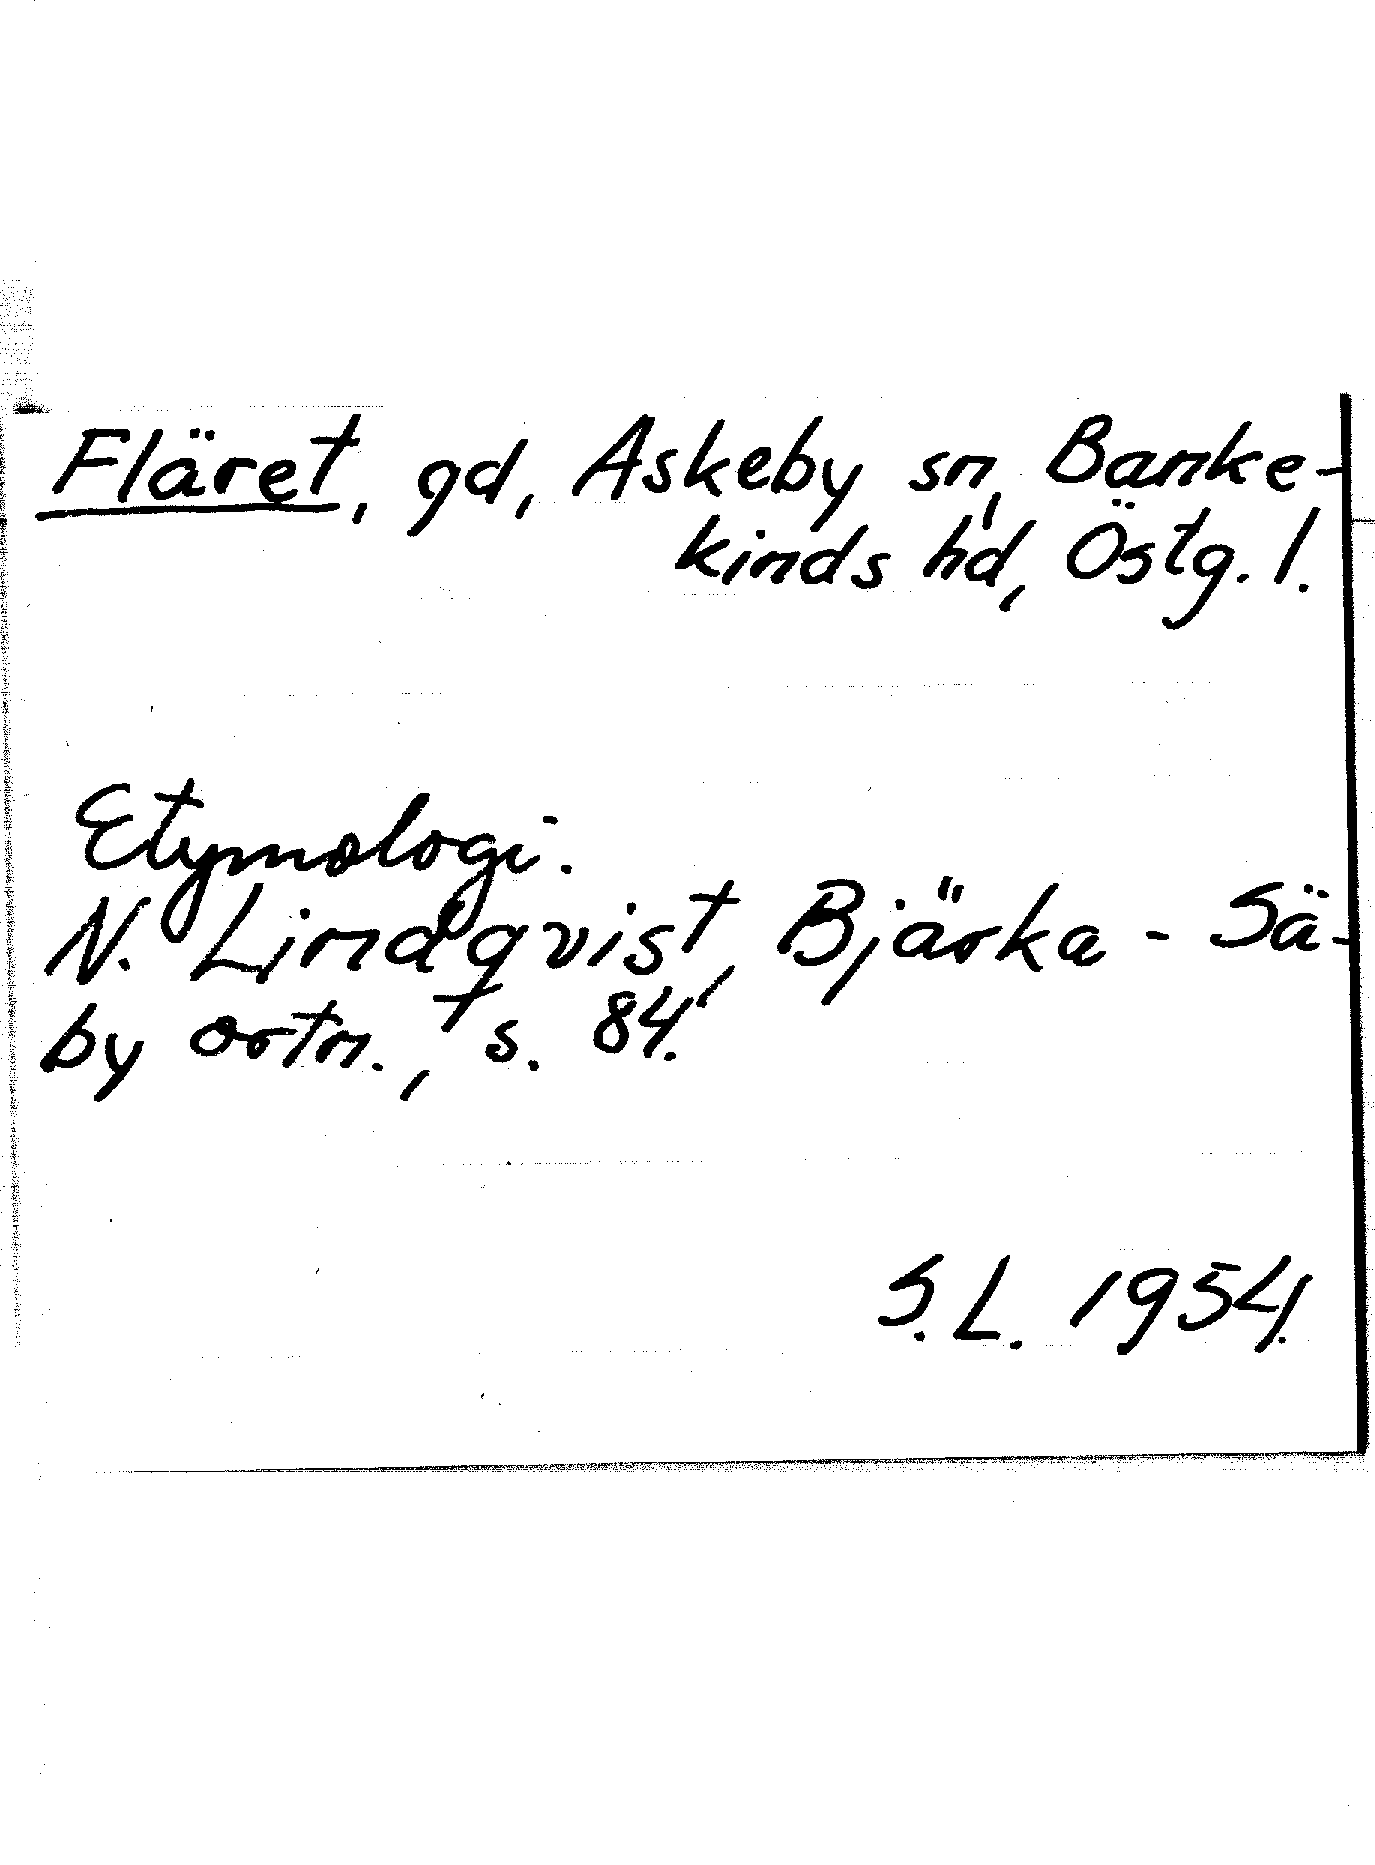 Fläret, gd, Askeby sn, Banke-
kinds hd, Östg. l.
Etymologi.
N. Lindqvist, Bjärka - Sä-
by ortn., s. 84.
S. L. 1954.